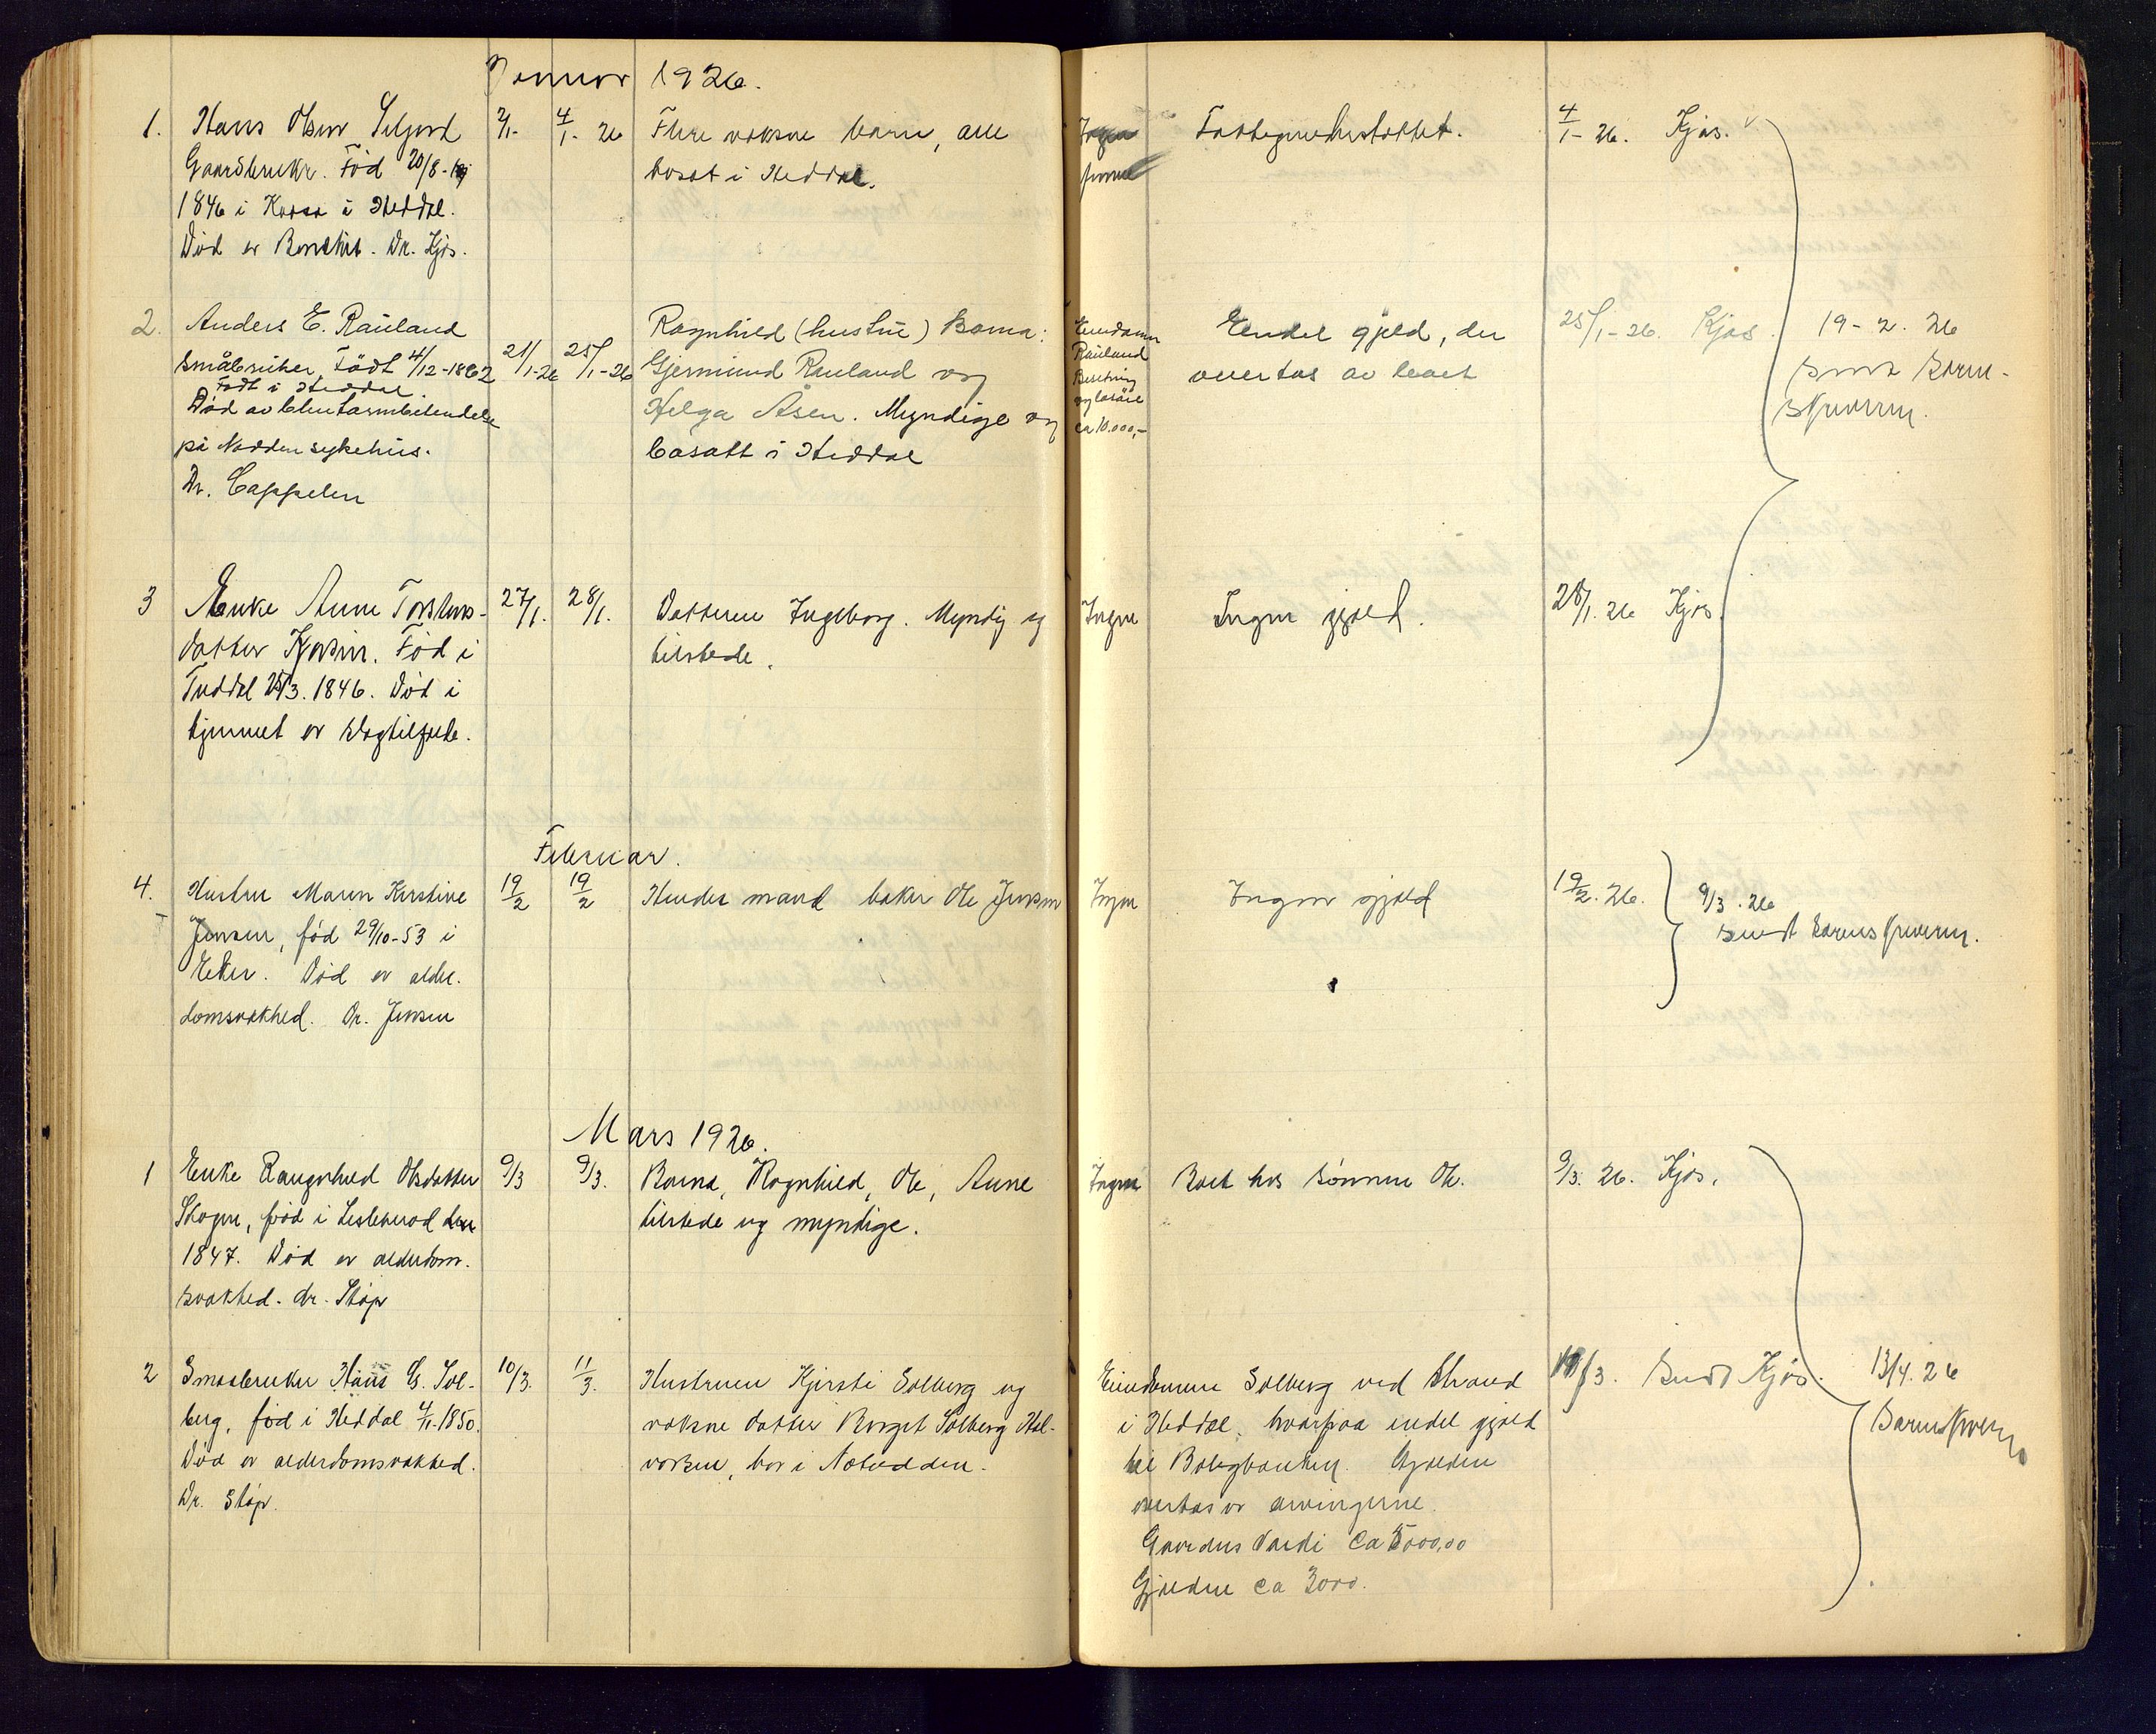 Januar 1926.
1. Hans Olsen Seljord
Gaardbruker. Fød 20/8-
1846 i Kaasa i Heddal.
Død av Bronkit. Dr. Kjøs.
2/1- 4/1-26
Flere voksne barn, alle
bosat i Heddal.
Ingen
Fattigunderstøttet.
4/1-26. Kjøs.
2. Anders E. Rauland
småbruker. Født 4/12-1862
Født i Heddal.
Død av blindtarmbetendelse
på Nodden sykehus.
Dr. Cappelen
21/1-26 25/1-26
Ragnhild (hustru) Barna:
Gjermund Rauland og
Helga Åsen. Myndige og
bosatt i Heddal
Eiendomm
Rauland
Besetning
og løsöre
ca 10.000,-
Endel gjeld, der
overtas av boet
25/1-26. Kjøs.
19-2. 26
Sendt Soren-
skriveren.
3 Enke Anne Torstens-
datter Kjøsin. Fød i
Tuddal 25/3. 1846. Død i
hjemmet av slagtilfælde.
27/1. 28/1.
Datteren Ingeborg. Myndig og
tilstede.
Ingen
Ingen gjæld.
28/1. 26 Kjøs.
Februar.
4. Hustru Maren Kirstine
Jensen, fød 29/10-53 i
Eker. Død av alder-
domsvakhed. Dr. Jensen
19/2 19/2
Hendes mand baker Ole Jensen
Ingen
Ingen gjæld
19/2. 26.
9/3. 26
sendt sorenskriveren.
Mars 1926.
1 Enke Raugnhild Olsdatter
Skogen, fød i Lisleherad den
1847. Død av alderdom-
svakhed. dr. Støp
9/3 9/3.
Barna, Ragnhild, Ole, Anne
tilstede og myndige.
Ingen
Boet hos sønnen Ole.
9/3. 26. Kjøs.
2 Smaabruker Hans G. Sol-
berg, fød i Heddal 4/11-1850.
Død av alderdomsvakhed.
Dr. Støp.
10/3. 11/3.
Hustruen Kjersti Solberg og
voksne datter Birgit Solberg Hal-
vorsen, bor i Notodden.
Eiendommen Solberg ved Strand
i Heddal, hvorpaa endel gjæld
til Boligbanken. Gjælden
overtas av arvingerne.
Gaardens Værdi ca 5000,00
Gjælden ca 3000.
11/3. Sendt Kjøs.
13/4. 26
Sorenskriveren